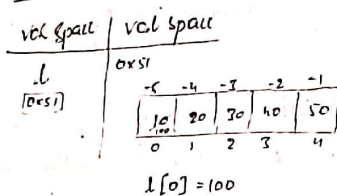 space | val space
l 0x51
0x51
-5 -4 -3 -2 -1
10 20 30 40 50
100
0 1 2 3 4
l[0] = 100